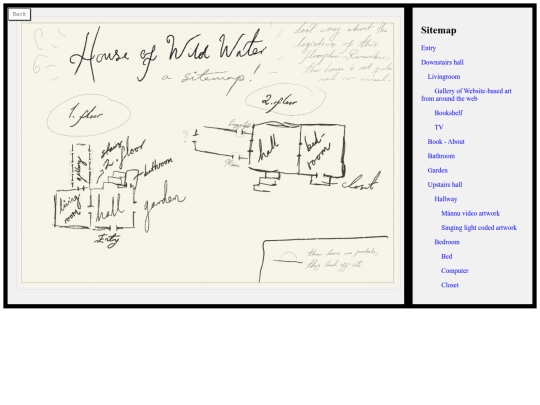 Back
House of Wild Water
a sitemap!
don't worry about the
logistics of this
floorplan. Remember,
the house is not quite
1. floor
2. floor
stairs
2. floor
bathroom
gallery
living
room
hall
garden
Entry
hall
bed-
room
closet
Sitemap
Entry
Downstairs hall
Livingroom
Gallery of Website-based art
from around the web
Bookshelf
TV
Book - About
Bathroom
Garden
Upstairs hall
Hallway
Mánnu video artwork
Singing light coded artwork
Bedroom
Bed
Computer
Closet